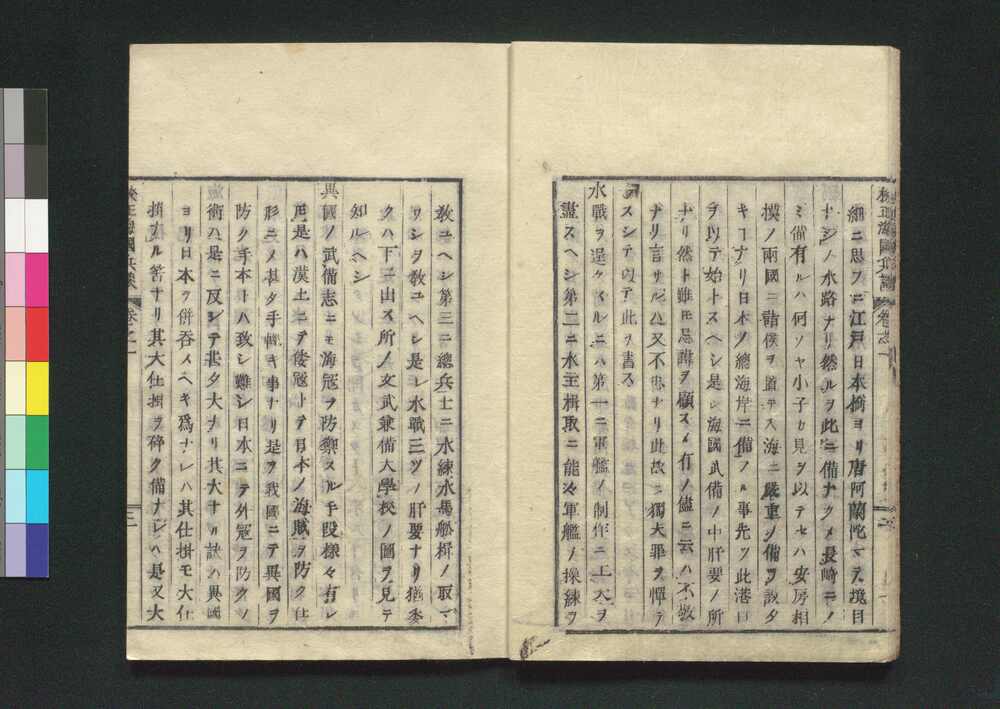 校正海國兵談 卷之一
細ニ思フニ江戸ノ日本橋ヨリ唐阿蘭陀マテ境目
ナシノ水路ナリ然ルヲ此ニ備ナクメ長崎ニノ
ミ備有ルハ何ソヤ小子カ見ヲ以テセハ安房相
模ノ兩國ニ諸侯ヲ置テ入海ニ嚴重ノ備ヲ設タ
キヿナリ日本ノ總海岸ニ備フル事先ツ此港口
ヲ以テ始トスヘシ是レ海國武備ノ中肝要ノ所
ナリ然ト雖モ忌諱ヲ顧スメ有ノ儘ニ云ハ不敬
ナリ言サルハ又不忠ナリ此故ニ獨夫罪ヲ憚ラ
スシテ以テ此ヲ書ス
水戰ヲ逞クスルニハ第一ニ軍艦ノ制作ニ工夫ヲ
盡スヘシ第二ニ水主楫取ニ能々軍艦ノ操練ヲ
教ユヘシ第三ニ總兵士ニ水練水馬船楫ノ取マ
ワシヲ教ユヘシ是レ水戰三ツノ肝要ナリ猶委
クハ下ニ出ス所ノ文武兼備大學校ノ圖ヲ見テ
知ルヘシ
異國ノ武備志ニモ海冦ヲ防禦スル手段樣々有レ
𪜈是ハ漢土ニテ倭冦トテ日本ノ海賊ヲ防ク仕
形ニメ甚タ手輕キ事ナリ是ヲ我國ニテ異國ヲ
防ク手本トハ致シ難シ日本ニテ外冦ヲ防クノ
術ハ是ニ反シテ甚タ大ナリ其大ナル訣ハ異國
ヨリ日本ヲ併吞スヘキ爲ナレハ其仕掛モ大仕
掛ナル筈ナリ其大仕掛ヲ碎ク備ナレハ是又大
校正海國兵談 卷之一